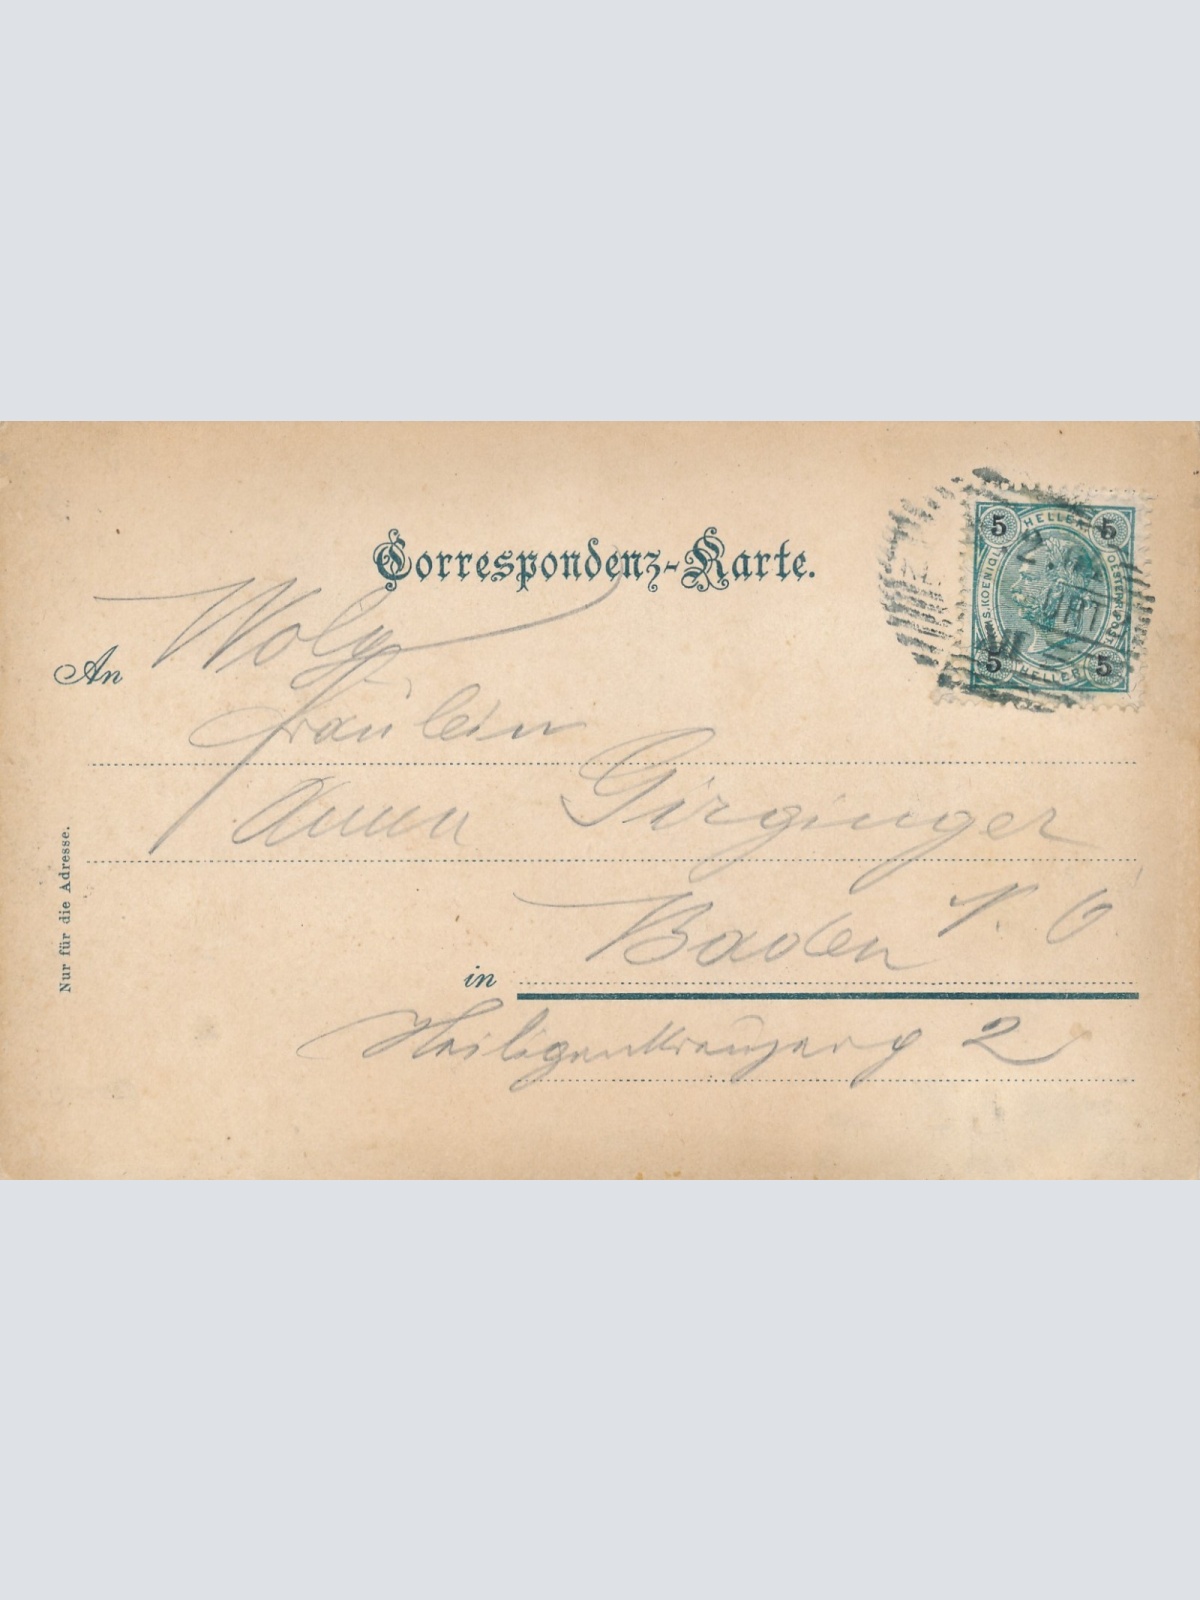 Correspondenz-Karte.
An
Wolg
Fräulein
Anna Girginger
in Baden N. Ö.
Heiligenkreuzerg 2
Nur für die Adresse.
5 HELLER 5
OESTERR. POST
5 HELLER 5